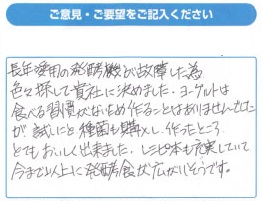 ご意見・ご要望をご記入ください
長年愛用の発酵機が故障した為
色々探して貴社に決めました。ヨーグルトは
食べる習慣がないため作ることはありませんでした
が試しにと種菌も購入し、作ったところ
とてもおいしく出来ました。レシピ本も充実していて
今まで以上に発酵食が広がりそうです。